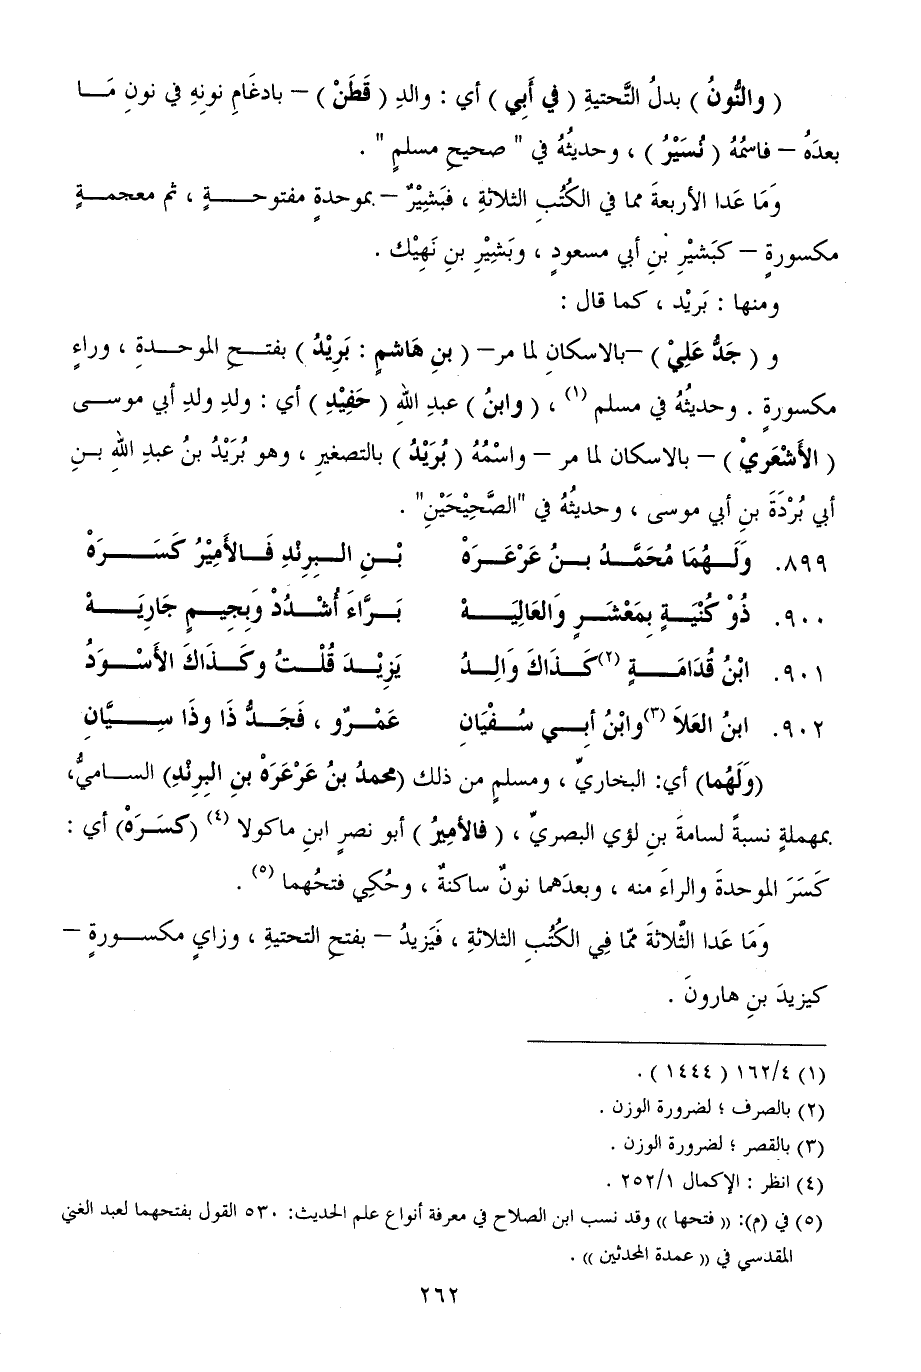 ( والنُّونُ ) بدلُ التَّحتيةِ ( في أَبي ) أي : والدِ ( قَطَنْ ) – بادغَامِ نونهِ في نونِ مَـــا
بعدَهُ – فاسمُهُ ( نُسَيْرُ ) ، وحديثُهُ في " صحيحِ مسلمٍ " .
وَمَا عَدا الأربعةَ مما في الكُتُبِ الثلاثةِ ، فَبَشِيْرٌ – بموحدةٍ مفتوحـــــةٍ ، ثم معجمـــةٍ
مكسورةٍ – كبَشيْرِ بنِ أبي مسعودٍ ، وبَشِيْرِ بنِ نَهِيْك .
ومنها : بَرِيْد ، كما قال :
و ( جَدُّ عَلِيْ ) –بالاسكانِ لما مر– ( بنِ هَاشمٍ : بَرِيْدُ ) بفتـــحِ الموحـــدةِ ، وراءٍ
مكسورةٍ . وحديثُهُ في مسلم (١) ، ( وابنُ ) عبدِ اللهِ ( حَفِيْدِ ) أي : ولدِ ولدِ أبي موســـى
( الأَشْعَريْ ) – بالاسكان لما مر – واسْمُهُ ( بُرَيْدُ ) بالتصغيرِ ، وهو بُرَيْدُ بنُ عبدِ اللهِ بــنِ
أبي بُرْدَةَ بنِ أبي موسى ، وحديثُهُ في "الصَّحِيْحَيْنِ" .
٨٩٩. وَلَـــهُمَا مُحَمَّـــدُ بـــنُ عَرْعَـــرَهْ بْـــنِ الـــبِرِنْدِ فَـــالأَمِيْرُ كَسَـــرَهْ
٩٠٠. ذُوْ كُنْيَـــةٍ بِمَعْشَـــرٍ وَالعَالِيَـــهْ بَـــرَّاءَ أُشْـــدُدْ وَبِجِيـــمٍ جَارِيَـــهْ
٩٠١. ابْنُ قُدَامَـــةٍ (٢)كَـــذَاكَ وَالِـــدُ يَزِيْـــدَ قُلْـــتُ وكَـــذَاكَ الأَسْـــوَدُ
٩٠٢. ابنُ العَلاَ (٣)وابْنُ أبـــي سُـــفْيَانِ عَمْـــرٌو ، فَجَـــدُّ ذَا وذَا سِـــيَّانِ
(وَلَهُما) أي: البخاريِّ ، ومسلمٍ من ذلك (محمدُ بنُ عَرْعَرَهْ بنِ البِرِنْدِ) الســـاميُّ،
بمهملةٍ نسبةً لسامةَ بنِ لؤي البصريِّ ، ( فالأميرُ ) أبو نصرٍ ابنِ ماكولا (٤) (كسَرَهْ) أي :
كَسَرَ الموحدةَ والراءَ منه ، وبعدَهما نونٌ ساكنةٌ ، وحُكِي فتحُهما (٥) .
وَمَا عَدا الثَّلاثةَ ممّا فِي الكُتُبِ الثلاثةِ ، فَيَزيدُ – بفتحِ التحتيةِ ، وزايٍ مكســـورةٍ –
كيزيدَ بنِ هارونَ .
(١) ١٦٢/٤ ( ١٤٤٤ ) .
(٢) بالصرف ؛ لضرورة الوزن .
(٣) بالقصر ؛ لضرورة الوزن .
(٤) انظر : الإكمال ٢٥٢/١ .
(٥) في (م): (( فتحها )) وقد نسب ابن الصلاح في معرفة أنواع علم الحديث: ٥٣٠ القول بفتحهما لعبد الغني
المقدسي في (( عمدة المحدثين )) .
٢٦٢